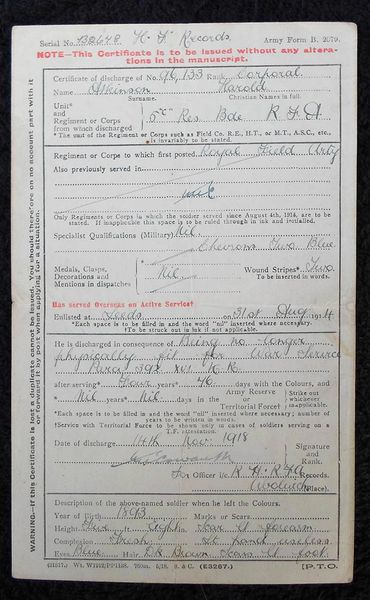 Serial No. B2648 H. F. Records. Army Form B. 2079.
NOTE—This Certificate is to be issued without any altera-
tions in the manuscript.
Certificate of discharge of No. 96,133 Rank Corporal
Atkinson Harold
Surname. Christian Names in full.
Unit*
and
Regiment or Corps
from which discharged
5"C" Res. Bde R F A
* The unit of the Regiment or Corps such as Field Co. R.E., H.T., or M.T., A.S.C., etc.,
is invariably to be stated.
Regiment or Corps to which first posted Royal Field Arty
Also previously served in
nil
Only Regiments or Corps in which the soldier served since August 4th, 1914, are to be
stated. If inapplicable this space is to be ruled through in ink and initialled.
Specialist Qualifications (Military) Nil.
Chevrons Two Blue
Medals, Clasps,
Decorations and
Mentions in dispatches
Nil.
Wound Stripes* Two
To be inserted in words.
Has served Overseas on Active Service†
Enlisted at Leeds on 31st Aug 1914
*Each space is to be filled in and the word "nil" inserted where necessary.
†To be struck out in ink if not applicable.
He is discharged in consequence of Being no longer
physically fit for War Service
Para 392 xvi K.R.
after serving* Four years* 76 days with the Colours, and
* Nil years* Nil days in the
Army Reserve
Territorial Force†
Strike out
whichever
inapplicable.
*Each space is to be filled in and the word "nil" inserted where necessary; number of
years to be written in words.
†Service with Territorial Force to be shown only in cases of soldiers serving on a
T.F. attestation.
Date of discharge 14th Nov. 1918
Signature
and
Rank.
For Officer i/c. R.H. & R.F.A Records.
Woolwich (Place).
Description of the above-named soldier when he left the Colours.
Year of Birth 1893 Marks or Scars
Height Five ft. eight in. Scar lt forearm
Complexion Fresh. Lt hand useless
Eyes Blue. Hair Dk Brown Scars lt foot
[P.T.O.
WARNING—If this Certificate is lost a duplicate cannot be issued. You should therefore on no account part with it
or forward it by post when applying for a situation.